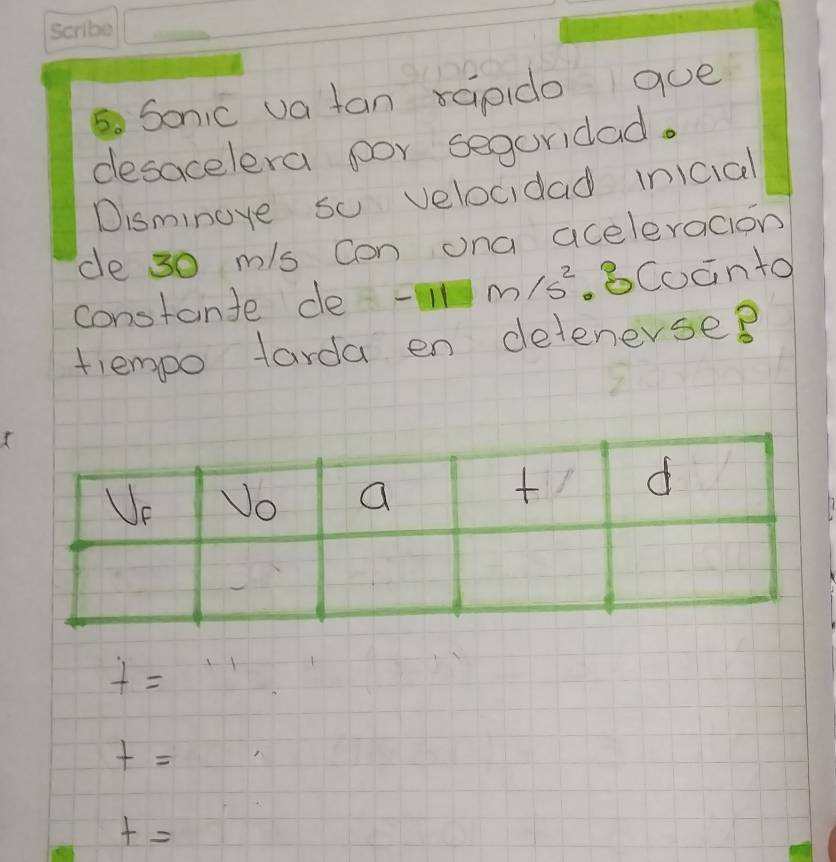 Scribe
5. Sonic va tan rápido que
desacelera por seguridad.
Disminuye su velocidad inicial
de 30 m/s con una aceleración
constante de -11 m/s². ¿Cuánto
tiempo tarda en detenerse?
VF Vo a t d
t =
t =
t =